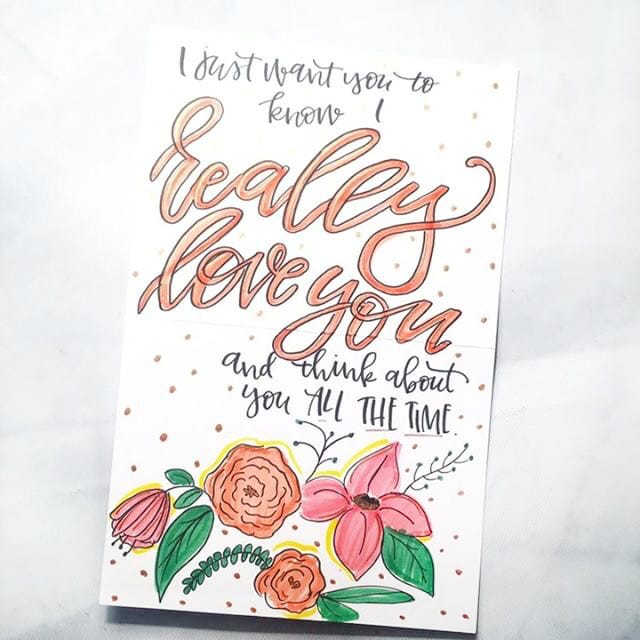 I just want you to
know I
really
love you
and think about
you ALL THE TIME.